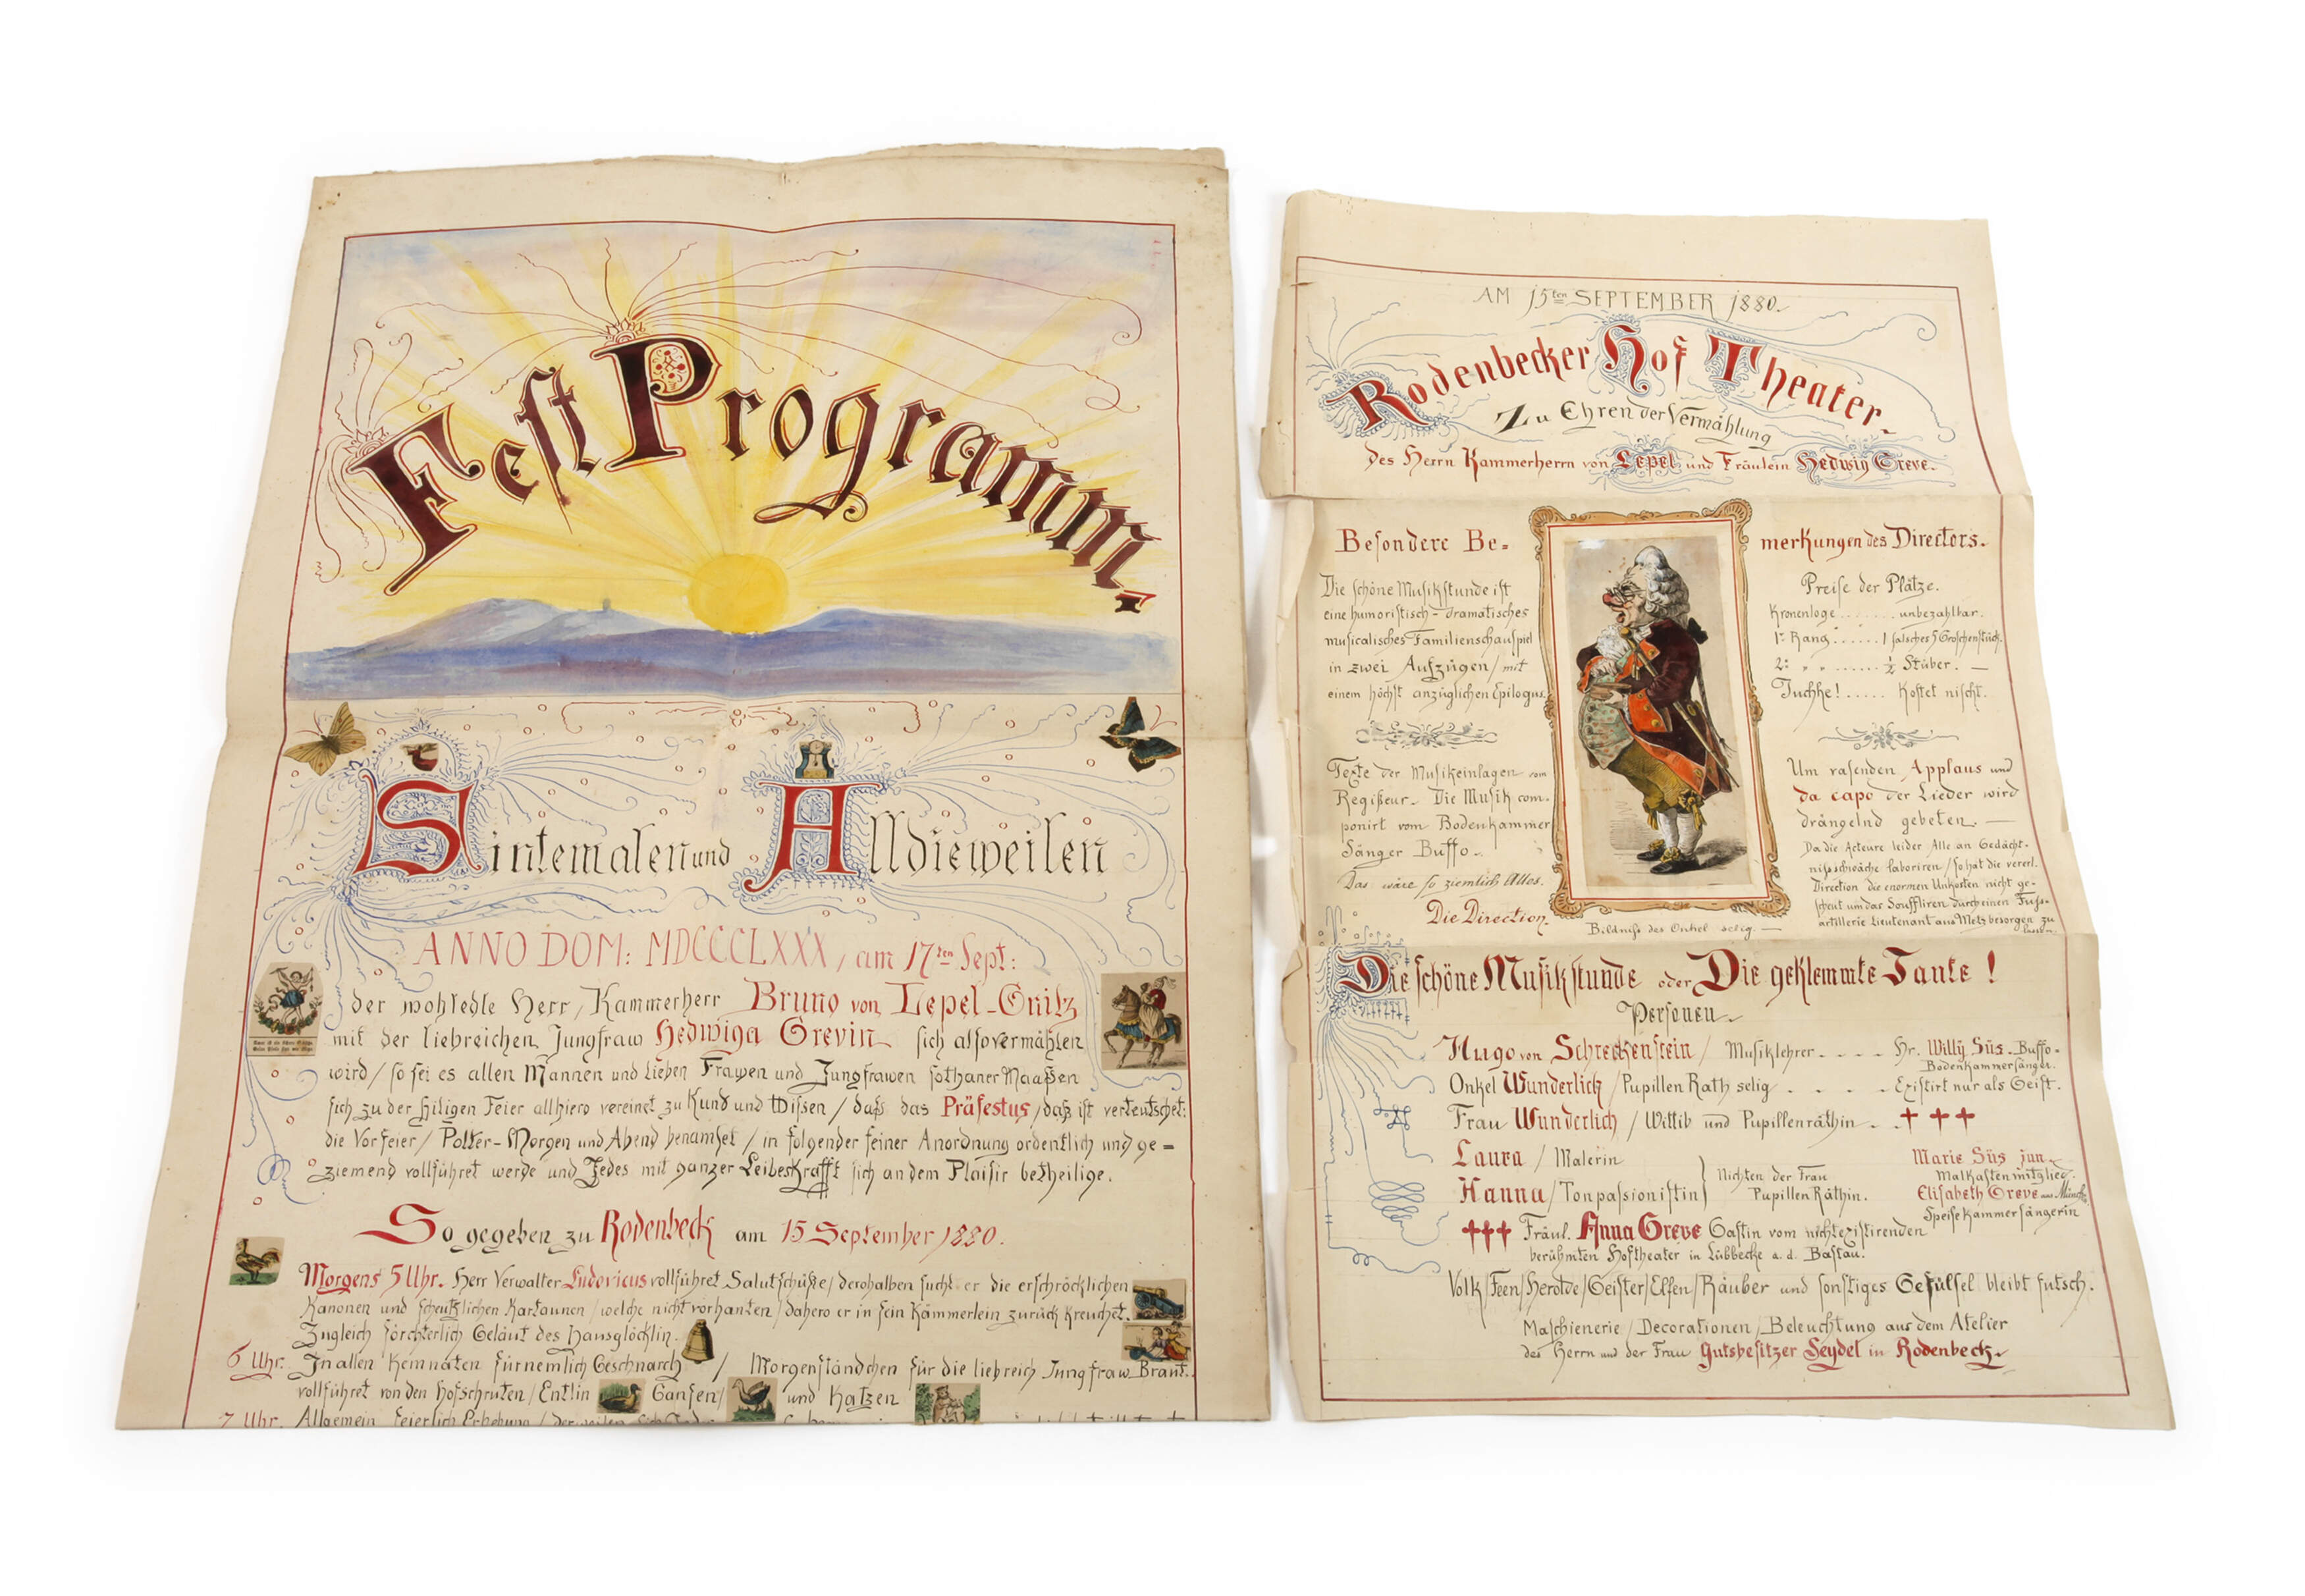 Fest Programm.
Sintemalen und Alldieweilen
ANNO DOM: MDCCCLXXX, am 17ten Sept:
der wohledle Herr, Kammerherr Bruno von Lepel-Gnitz
mit der liebreichen Jungfraw Hedwiga Grevin sich also vermählen
wird / so sei es allen Mannen und lieben Frawen und Jungfrawen sothaner Maaßen
sich zu der hiligen Feier allhiero vereinet zu Kund und Wissen / daß das Präfestus / daß ist verteutschet:
die Vorfeier / Polter-Morgen und Abend benamset / in folgender feiner Anordnung ordentlich und ge=
ziemend vollführet werde und Jedes mit ganzer Leibeskrafft sich an dem Plaisir betheilige.
So gegeben zu Rodenbeck am 15 September 1880.
Morgens 5 Uhr. Herr Verwalter Ludovicus vollführet Salutschüße / derohalben sucht er die erschröcklichen
Kanonen und scheußlichen Kartaunen / welche nicht vorhanten / dahero er in sein Kämmerlein zurück kreuchet.
Zugleich förchterlich Geläut des Hausglöcklin.
6 Uhr. In allen Kemnaten fürnemlich Geschnarch / Morgenständchen für die liebreich Jungfraw Braut.
vollführet von den Hofschruten / Entlin Gansen / und Katzen
7 Uhr. Allgemein feierlich Erhebung /
AM 15ten SEPTEMBER 1880.
Rodenbecker Hof Theater.
Zu Ehren der Vermählung
des Herrn Kammerherrn von Lepel und Fräulein Hedwig Greve.
Besondere Be=
merkungen des Directors.
Die schöne Musikstunde ist
eine humoristisch-dramatisches
musicalisches Familienschauspiel
in zwei Aufzügen / mit
einem höchst anzüglichen Epilogus.
Texte der Musikeinlagen vom
Regißeur. Die Musik com-
ponirt vom Bodenkammer
Sänger Buffo.
Das wäre so ziemlich Alles.
Die Direction.
Bildniß des Onkel selig.
Preise der Plätze.
Kronenloge ....... unbezahlbar.
1r Rang ...... 1 falsches 5 Groschenstück.
2: " " ....... ½ Stüber. —
Juchhe! ..... Kostet nischt.
Um rasenden Applaus und
da capo der Lieder wird
drängelnd gebeten. —
Da die Acteure leider Alle an Gedächt-
nißschwäche laboriren / so hat die vererl.
Direction die enormen Unkosten nicht ge-
scheut um das Souffliren durch einen Fuss-
artillerie Lieutenant aus Metz besorgen zu
Die schöne Musikstunde oder Die geklemmte Tante!
Personen.
Hugo von Schreckenstein / Musiklehrer. - - - Hr. Willy Süs. Buffo-
Bodenkammersänger.
Onkel Wunderlich / Pupillen Rath selig . . . . . Existirt nur als Geist.
Frau Wunderlich / Wittib und Pupillenräthin - . . † † †
Laura / Malerin
Hanna / Tonpassionistin
Nichten der Frau
Pupillen Räthin.
Marie Süs jun.
Malkastenmitglied.
Elisabeth Greve aus
Speisekammersängerin
††† Fräul. Anna Greve Gastin vom nichtexistirenden
berühmten Hoftheater in Lübbecke a. d. Bastau.
Volk / Feen / Herolde / Geister / Elfen / Räuber und sonstiges Gefülsel bleibt futsch.
Maschienerie / Decorationen / Beleuchtung aus dem Atelier
des Herrn und der Frau Gutsbesitzer Seydel in Rodenbeck.